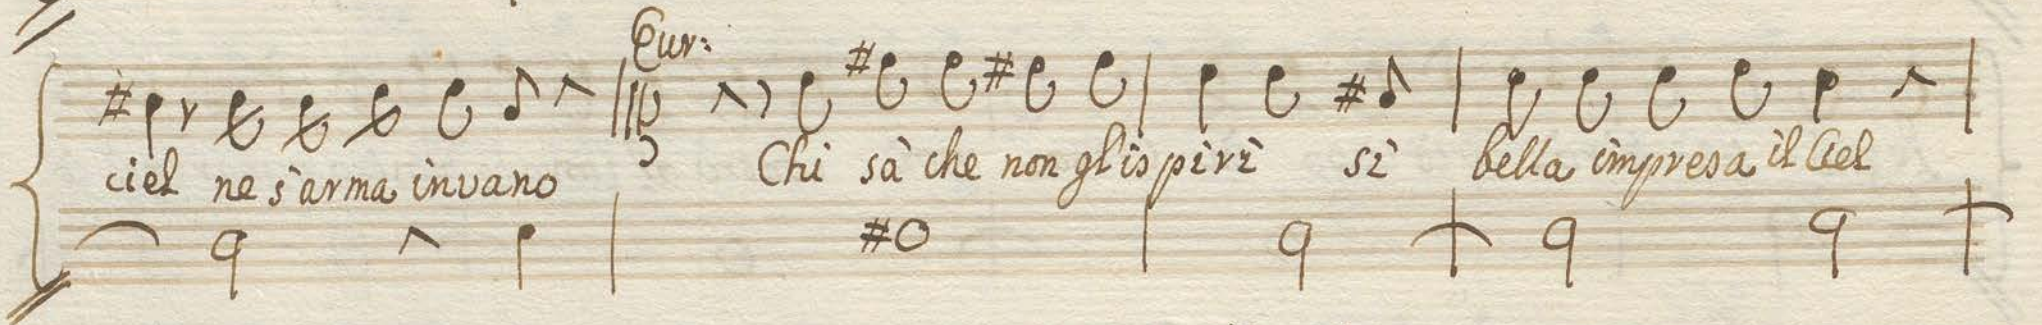 Eur:
ciel ne s'arma invano Chi sà che non gl'ispiri sì bella impresa il Ciel